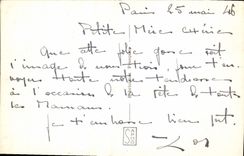 Paris 25 mai 48
Petite Mère chérie
Que cette jolie gosse soit
l'image de nous trois, pour t'en
voyer toute notre tendresse
à l'occasion de la fête de toutes
les Mamans.
Je t'embrasse bien fort.